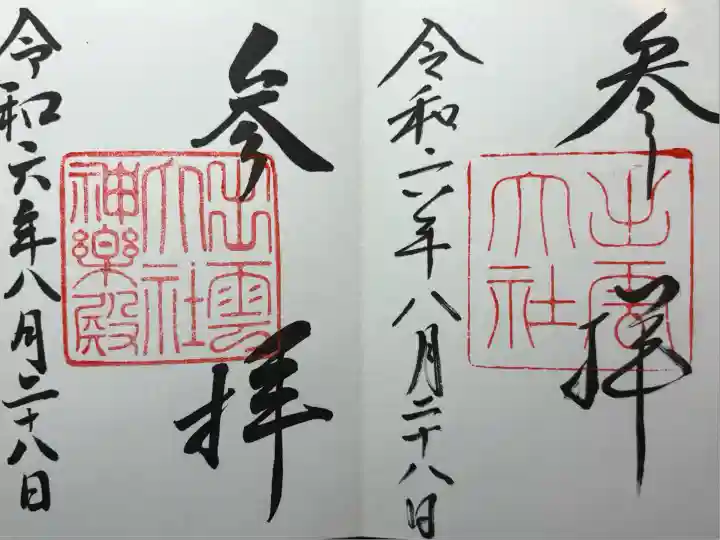 参拝
出雲
大社
令和六年八月二十八日
参拝
出雲
大社
神樂殿
令和六年八月二十八日